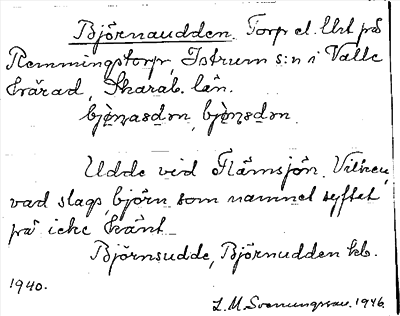 Björnaudden. Torp el. lht på
Remmingstorp, Istrum s:n i Valle
härad, Skarab. län.
bjò̤ṇasdən, bjò̤ṇsdən.
Udde vid Flämsjön. Vilken
vad slags björn som namnet syftet
på icke känt.
Björnsudde, Björnudden kb.
1940.
L.M. Svenungsson. 1946.